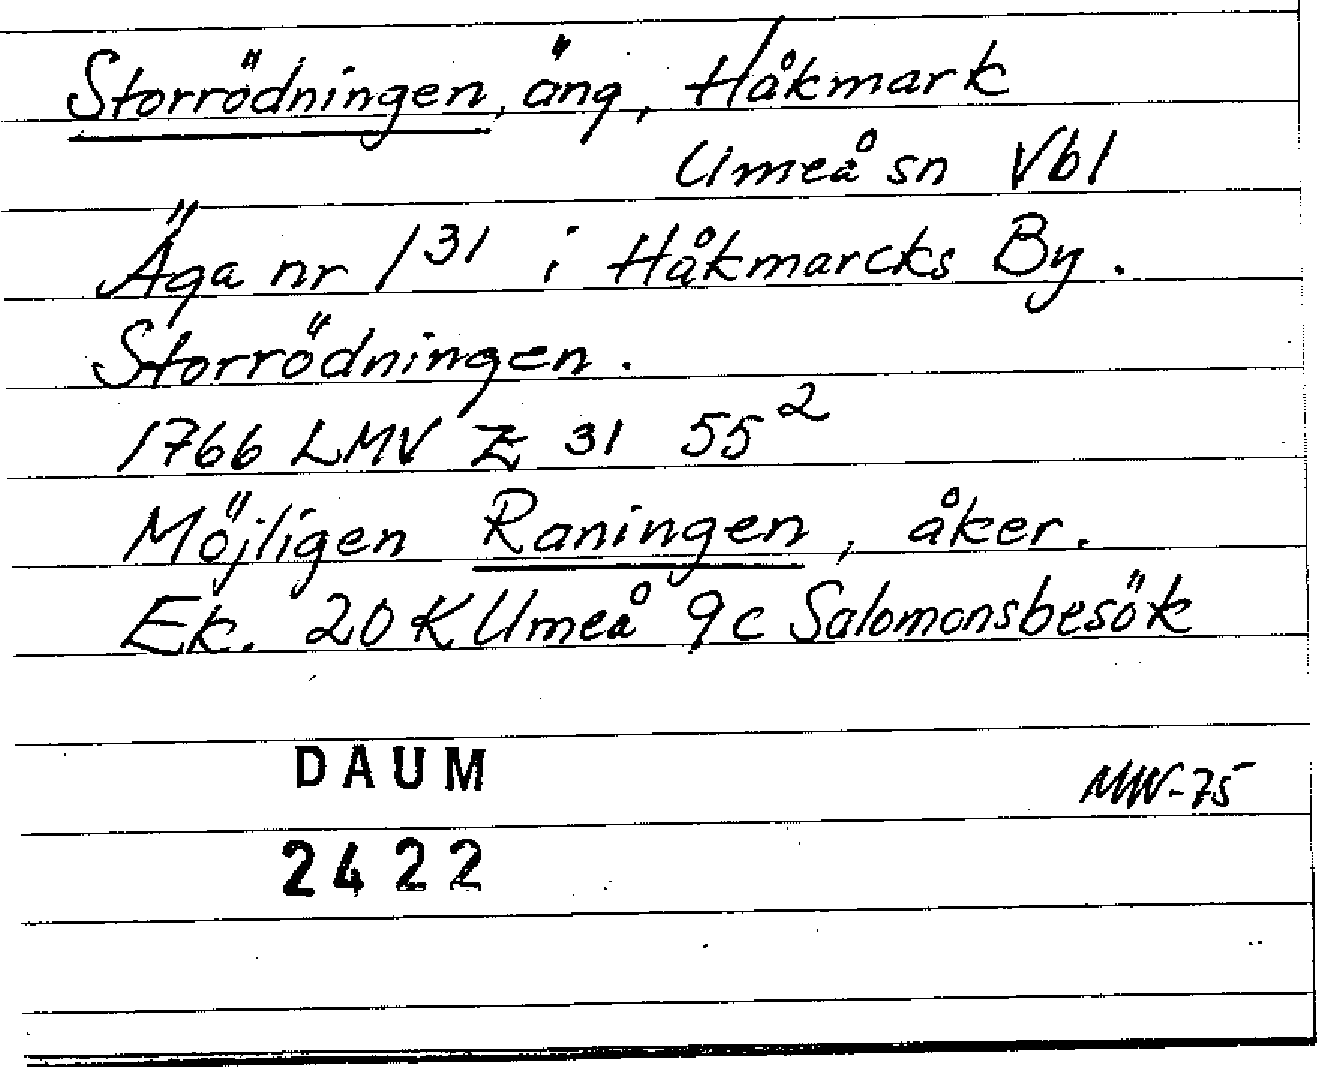 Storrödningen, äng, Håkmark
Umeå sn Vbl
Äga nr 1³¹ i Håkmarcks By.
Storrödningen.
1766 LMV Z 31 55²
Möjligen Raningen, åker.
Ek. 20 K Umeå 9c Salomonsbesök
DAUM
MW-75
2422